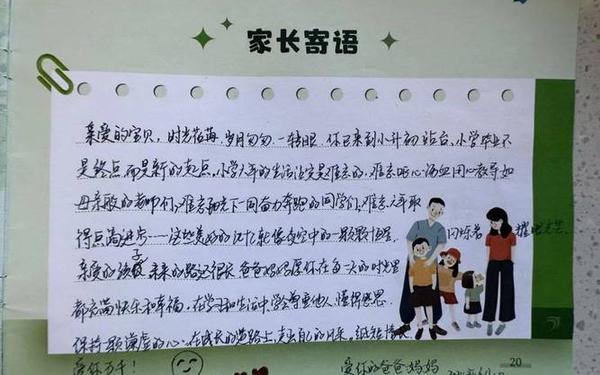 家长寄语
亲爱的宝贝，时光荏苒，岁月匆匆，一转眼，你已来到小升初站台，小学毕业不
是终点，而是新的起点，小学六年的生活注定是难忘的，难忘呕心沥血用心教导如
母亲般的老师们，难忘阳光下一同奋力奔跑的同学们，难忘六年取
得点滴进步……这些美好的记忆就像夜空中的一颗颗恒星，闪烁着耀眼光芒。
亲爱的孩子，未来的路还很长，爸爸妈妈愿你在每一天的时光里
都充满快乐和幸福，在学习和生活中学会尊重他人，懂得感恩，
保持一颗谦虚的心，在成长的道路上，走出自己的风采，
爱你万千！
爱你的爸爸妈妈
20